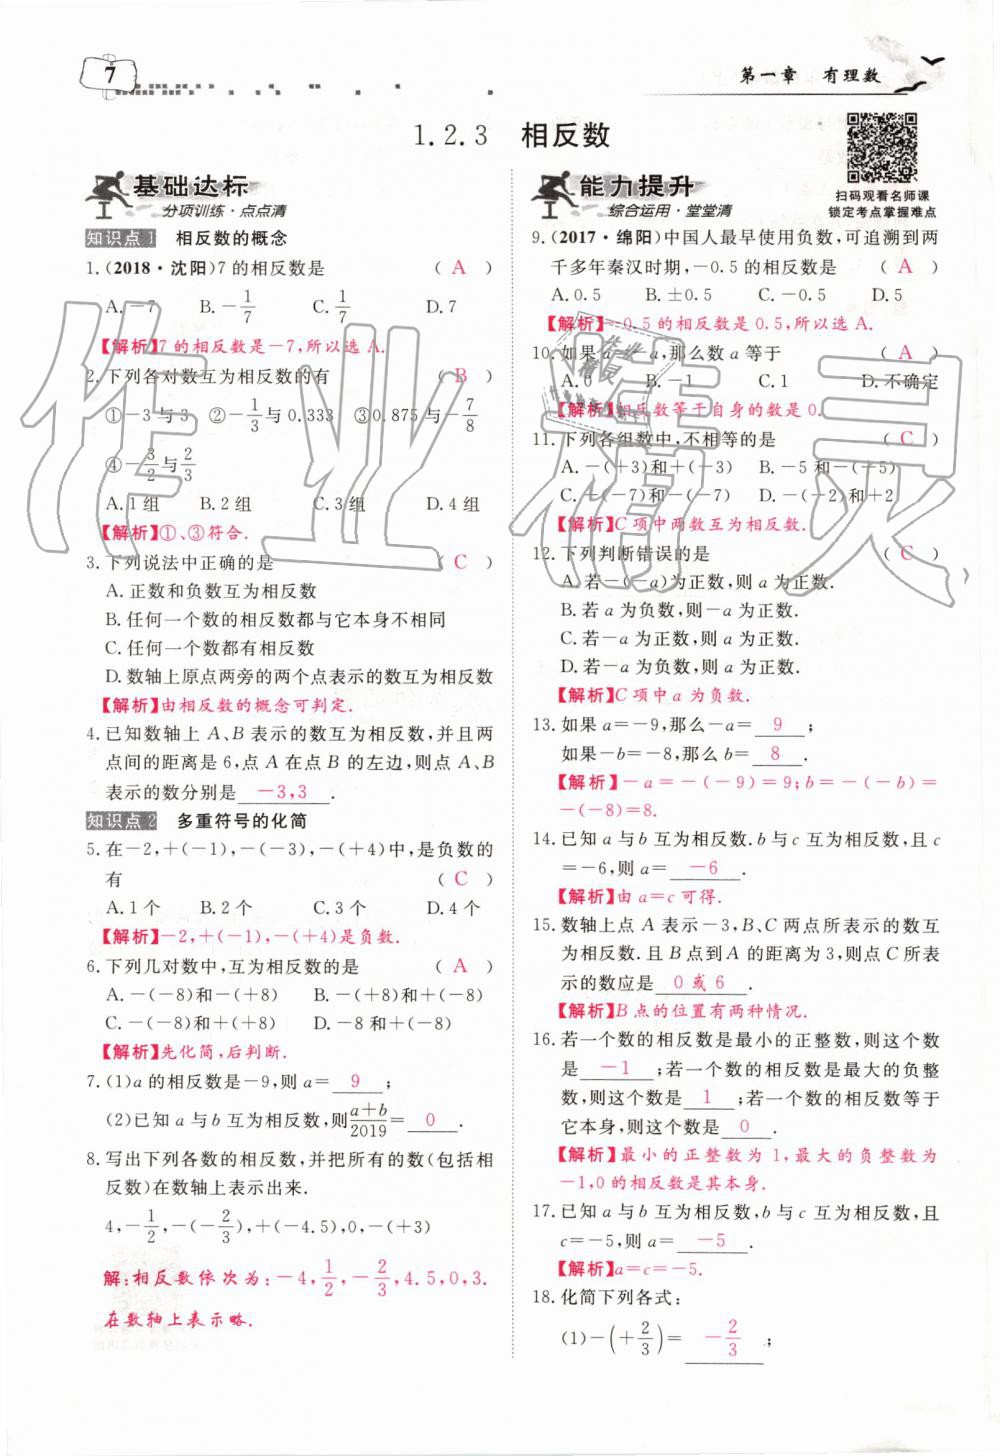 7
第一章 有理数
1.2.3 相反数
基础达标
分项训练·点点清
知识点1 相反数的概念
1.(2018·沈阳)7的相反数是 ( A )
A.-7 B.-1/7 C.1/7 D.7
【解析】7的相反数是-7,所以选A.
2.下列各对数互为相反数的有 ( B )
①-3与3 ②-1/3与0.333 ③0.875与-7/8
④-3/2与2/3
A.1组 B.2组 C.3组 D.4组
【解析】①、③符合.
3.下列说法中正确的是 ( C )
A.正数和负数互为相反数
B.任何一个数的相反数都与它本身不相同
C.任何一个数都有相反数
D.数轴上原点两旁的两个点表示的数互为相反数
【解析】由相反数的概念可判定.
4.已知数轴上A、B表示的数互为相反数,并且两
点间的距离是6,点A在点B的左边,则点A、B
表示的数分别是 -3,3 .
知识点2 多重符号的化简
5.在-2,+(-1),-(-3),-(+4)中,是负数的
有 ( C )
A.1个 B.2个 C.3个 D.4个
【解析】-2,+(-1),-(+4)是负数.
6.下列几对数中,互为相反数的是 ( A )
A.-(-8)和-(+8) B.-(+8)和+(-8)
C.-(-8)和+(+8) D.-8和+(-8)
【解析】先化简,后判断.
7.(1)a的相反数是-9,则a= 9 ;
(2)已知a与b互为相反数,则(a+b)/2019= 0 .
8.写出下列各数的相反数,并把所有的数(包括相
反数)在数轴上表示出来.
4,-1/2,-(-2/3),+(-4.5),0,-(+3)
解:相反数依次为:-4,1/2,-2/3,4.5,0,3.
在数轴上表示略.
能力提升
综合运用·堂堂清
扫码观看名师课
锁定考点掌握难点
9.(2017·绵阳)中国人最早使用负数,可追溯到两
千多年秦汉时期,-0.5的相反数是 ( A )
A.0.5 B.±0.5 C.-0.5 D.5
【解析】-0.5的相反数是0.5,所以选A.
10.如果a=-a,那么数a等于 ( A )
A.0 B.-1 C.1 D.不确定
【解析】相反数等于自身的数是0.
11.下列各组数中,不相等的是 ( C )
A.-(+3)和+(-3) B.-5和-(+5)
C.+(-7)和-(-7) D.-(-2)和+2
【解析】C项中两数互为相反数.
12.下列判断错误的是 ( C )
A.若-(-a)为正数,则a为正数.
B.若a为负数,则-a为正数.
C.若-a为正数,则a为正数.
D.若-a为负数,则a为正数.
【解析】C项中a为负数.
13.如果a=-9,那么-a= 9 ;
如果-b=-8,那么b= 8 .
【解析】-a=-(-9)=9;b=-(-b)=
-(-8)=8.
14.已知a与b互为相反数.b与c互为相反数,且c
=-6,则a= -6 .
【解析】由a=c可得.
15.数轴上点A表示-3,B、C两点所表示的数互
为相反数.且B点到A的距离为3,则点C所表
示的数应是 0或6 .
【解析】B点的位置有两种情况.
16.若一个数的相反数是最小的正整数,则这个数
是 -1 ;若一个数的相反数是最大的负整
数,则这个数是 1 ;若一个数的相反数等于
它本身,则这个数是 0 .
【解析】最小的正整数为1,最大的负整数为
-1,0的相反数是其本身.
17.已知a与b互为相反数,b与c互为相反数,且
c=-5,则a= -5 .
【解析】a=c=-5.
18.化简下列各式:
(1)-(+2/3)= -2/3 ;
作业精灵